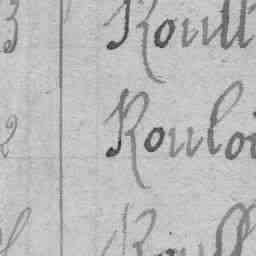 3 Roull
2 Rouloi
Roull